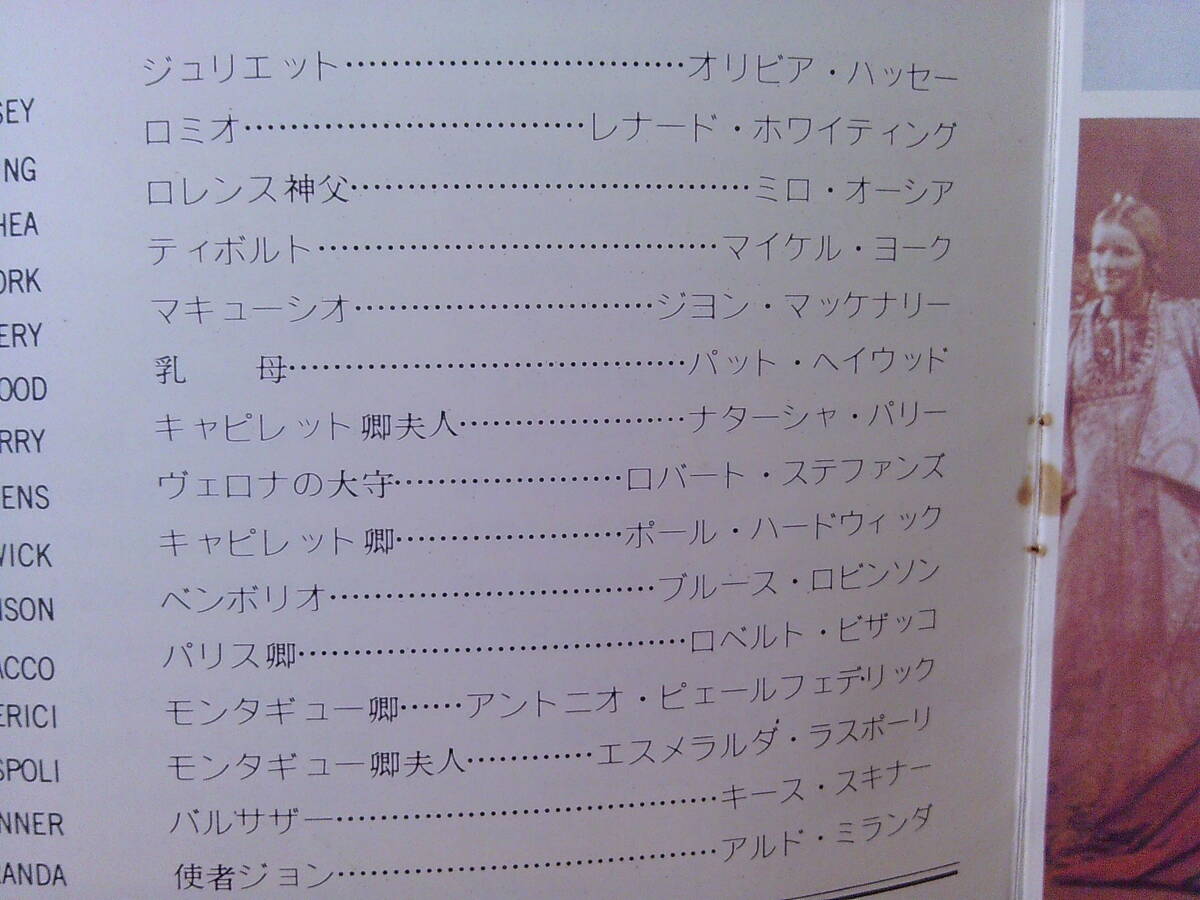 SEY
ジュリエット……………………………オリビア・ハッセー
ING
ロミオ……………………………レナード・ホワイティング
HEA
ロレンス神父…………………………………ミロ・オーシア
ORK
ティボルト…………………………………マイケル・ヨーク
ERY
マキューシオ…………………………ジヨン・マッケナリー
OOD
乳　　母…………………………………パット・ヘイウッド
RRY
キャピレット卿夫人…………………ナターシャ・パリー
ENS
ヴェロナの大守…………………ロバート・ステファンズ
WICK
キャピレット卿…………………ポール・ハードウィック
NSON
ベンボリオ…………………………ブルース・ロビンソン
ACCO
パリス卿………………………………ロベルト・ビザッコ
ERICI
モンタギュー卿……アントニオ・ピェールフェデリック
SPOLI
モンタギュー卿夫人…………エスメラルダ・ラスポーリ
NNER
バルサザー………………………………キース・スキナー
ANDA
使者ジョン………………………………アルド・ミランダ